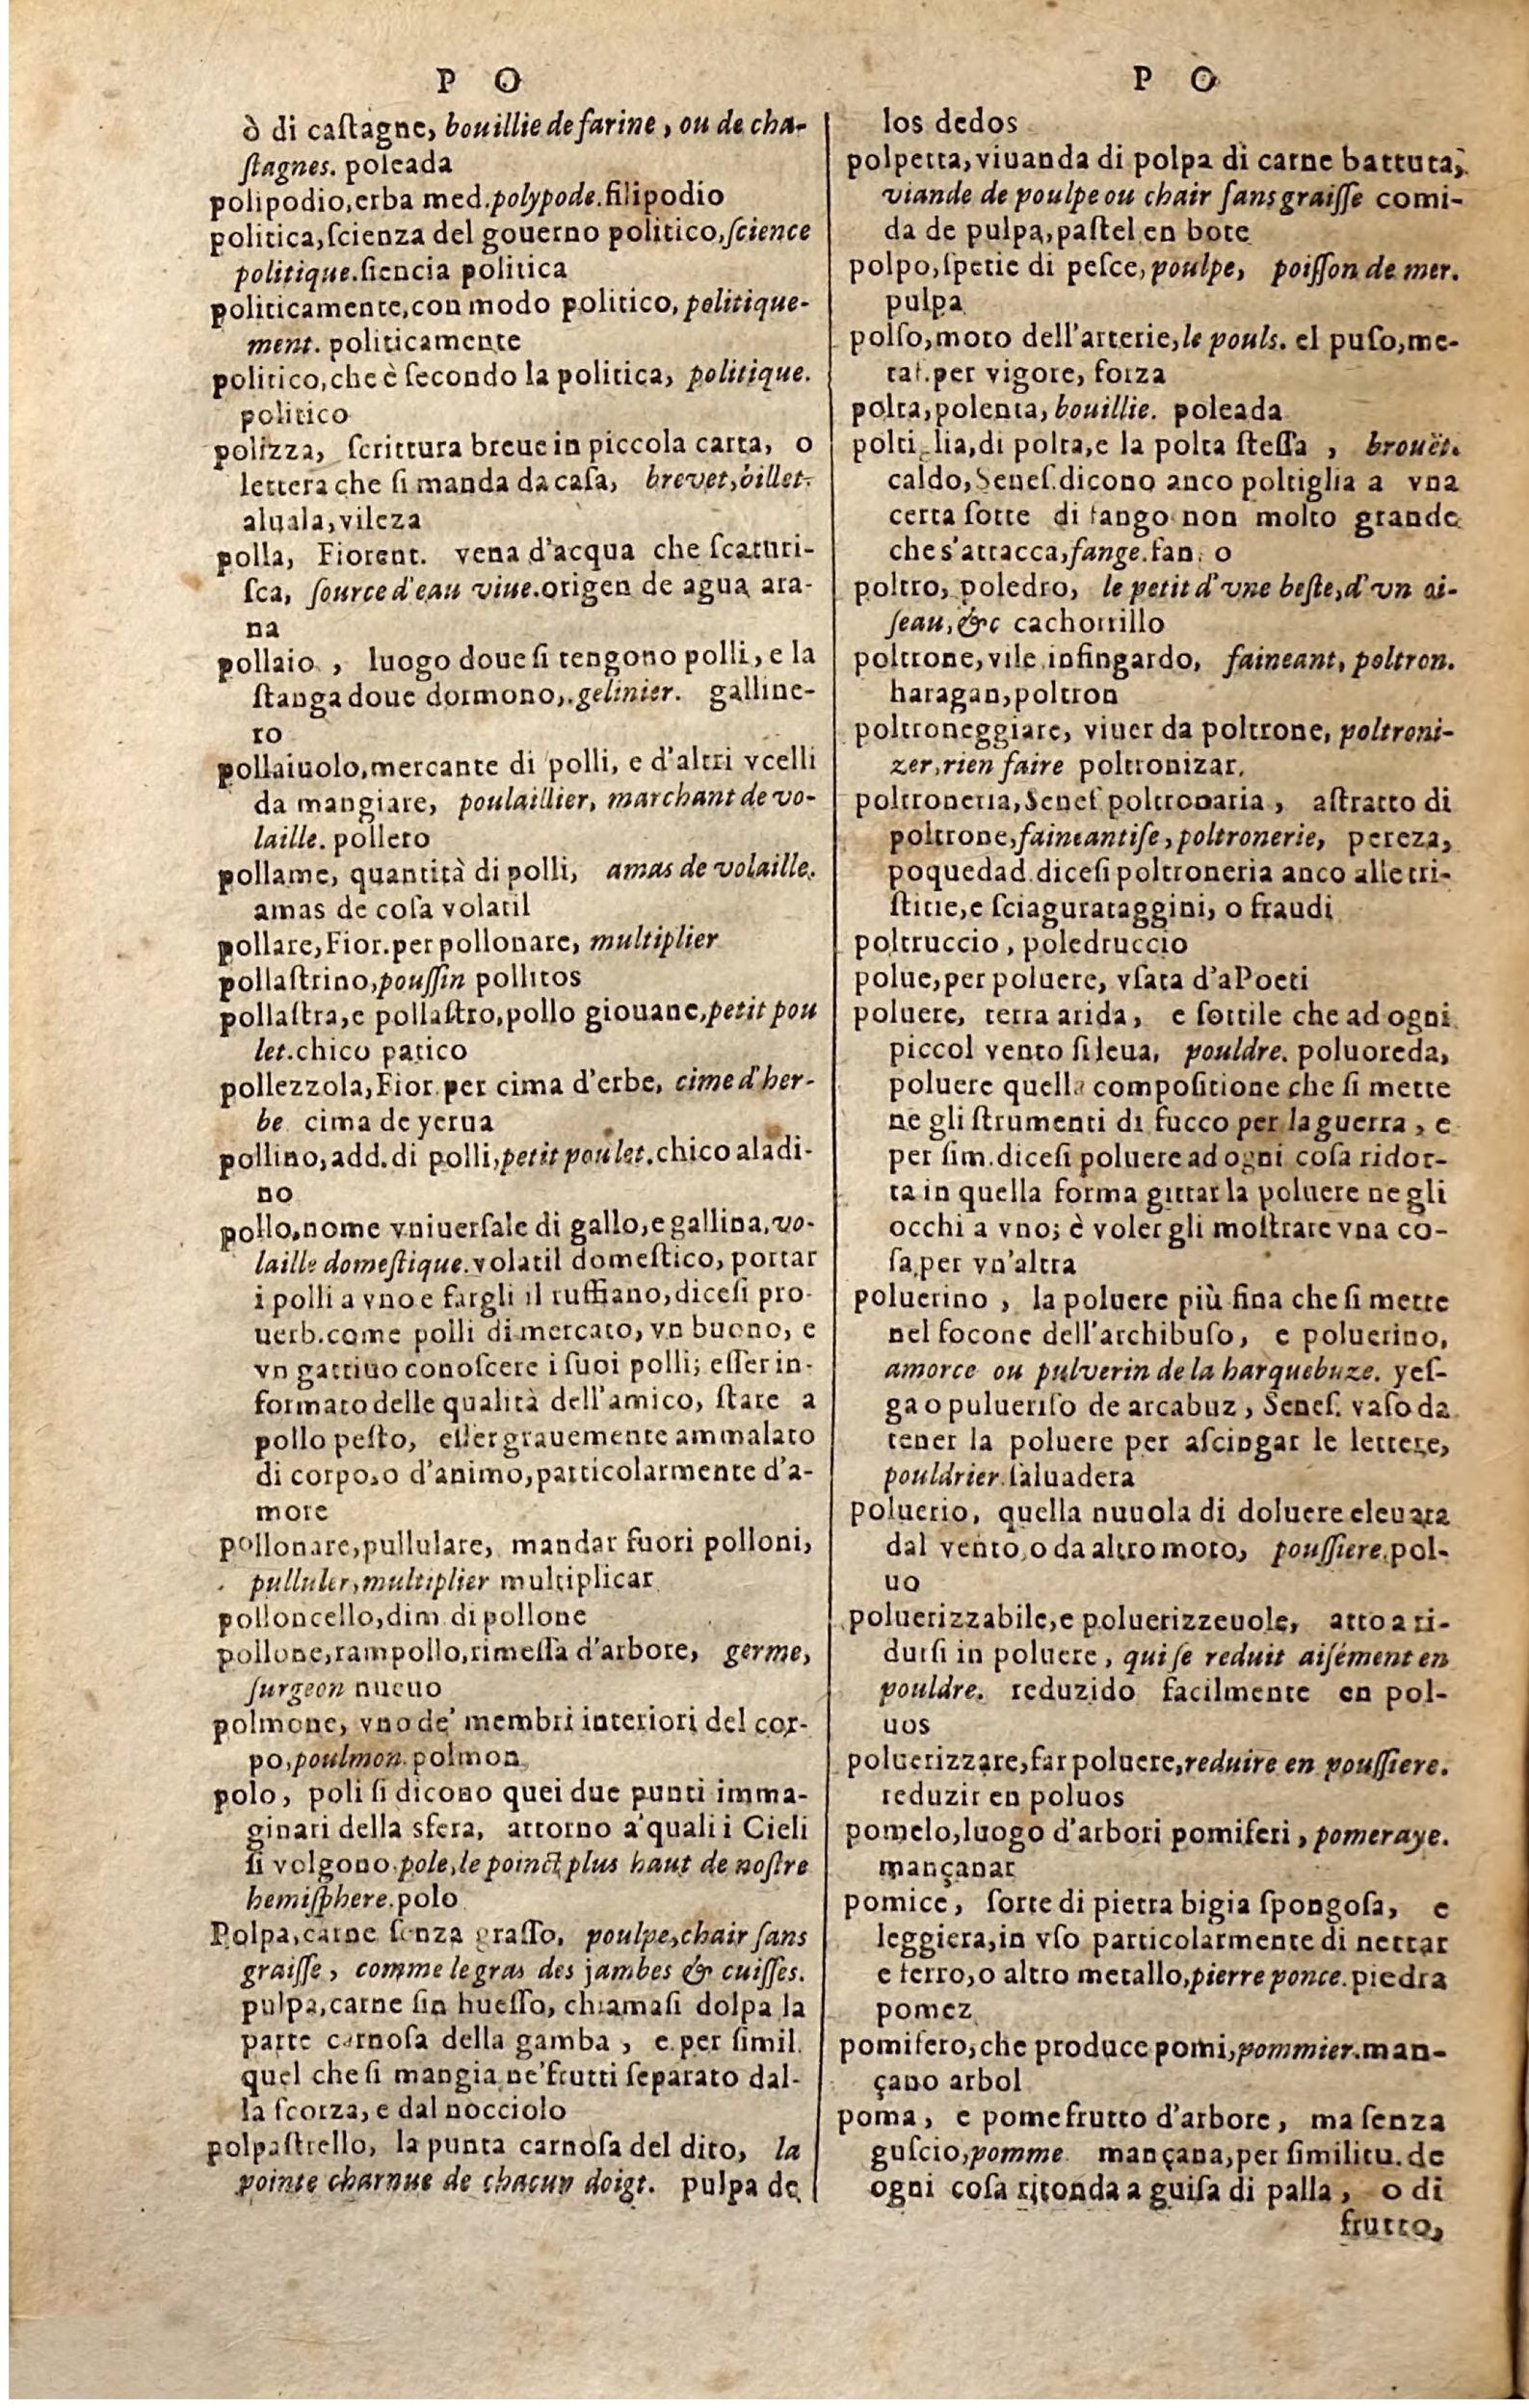 P O
ò di caſtagne, bouillie de farine, ou de cha-
ſtagnes. poleada
polipodio, erba med. polypode. filipodio
politica, ſcienza del gouerno politico, ſcience
politique. ſiencia politica
politicamente, con modo politico, politique-
ment. politicamente
politico, che è ſecondo la politica, politique.
politico
polizza, ſcrittura breue in piccola carta, o
lettera che ſi manda da caſa, brevet, billet.
aluala, vileza
polla, Fiorent. vena d'acqua che ſcaturi-
ſca, ſource d'eau viue. origen de agua ara-
na
pollaio, luogo doue ſi tengono polli, e la
ſtanga doue dormono,. gelinier. galline-
ro
pollaiuolo, mercante di polli, e d'altri vcelli
da mangiare, poulaillier, marchant de vo-
laille. pollero
pollame, quantità di polli, amas de volaille.
amas de coſa volatil
pollare, Fior. per pollonare, multiplier
pollaſtrino, pouſſin pollitos
pollaſtra, e pollaſtro, pollo giouane, petit pou
let. chico patico
pollezzola, Fior. per cima d'erbe, cime d'her-
be cima de yerua
pollino, add. di polli, petit poulet. chico aladi-
no
pollo, nome vniuerſale di gallo, e gallina, vo-
laille domeſtique. volatil domeſtico, portar
i polli a vno e fargli il ruffiano, diceſi pro-
uerb. come polli di mercato, vn buono, e
vn gattiuo conoſcere i ſuoi polli; eſſer in-
formato delle qualità dell'amico, ſtare a
pollo peſto, eſſer grauemente ammalato
di corpo, o d'animo, particolarmente d'a-
more
pollonare, pullulare, mandar fuori polloni,
pulluler, multiplier multiplicar
polloncello, dim. di pollone
pollone, rampollo, rimeſſa d'arbore, germe,
ſurgeon nueuo
polmone, vno de' membri interiori del cor-
po, poulmon. polmon
polo, poli ſi dicono quei due punti imma-
ginari della sfera, attorno a' quali i Cieli
ſi volgono. pole, le poinct plus haut de noſtre
hemiſphere. polo
Polpa, carne ſenza graſſo, poulpe, chair ſans
graiſſe, comme le gras des jambes & cuiſſes.
pulpa, carne ſin hueſſo, chiamaſi dolpa la
parte carnoſa della gamba, e per ſimil.
quel che ſi mangia ne' frutti ſeparato dal-
la ſcorza, e dal nocciolo
polpaſtrello, la punta carnoſa del dito, la
pointe charnue de chacun doigt. pulpa de
P O
los dedos
polpetta, viuanda di polpa di carne battuta,
viande de poulpe ou chair ſans graiſſe comi-
da de pulpa, paſtel en bote
polpo, ſpetie di peſce, poulpe, poiſſon de mer.
pulpa
polſo, moto dell'arterie, le pouls. el puſo, me-
taf. per vigore, forza
polta, polenta, bouillie. poleada
polti lia, di polta, e la polta ſteſſa, brouët.
caldo, Seneſ. dicono anco poltiglia a vna
certa ſorte di fango non molto grande
che s'attacca, fange. fan o
poltro, poledro, le petit d'vne beſte, d'vn oi-
ſeau, &c cachorrillo
poltrone, vile infingardo, faineant, poltron.
haragan, poltron
poltroneggiare, viuer da poltrone, poltroni-
zer, rien faire poltronizar.
poltroneria, Seneſ poltronaria, aſtratto di
poltrone, faineantiſe, poltronerie, pereza,
poquedad. diceſi poltroneria anco alle tri-
ſtitie, e ſciagurataggini, o fraudi
poltruccio, poledruccio
polue, per poluere, vſata d'a Poeti
poluere, terra arida, e ſottile che ad ogni
piccol vento ſi leua, pouldre. poluoreda,
poluere quella compoſitione che ſi mette
ne gli ſtrumenti di fucco per la guerra, e
per ſim. diceſi poluere ad ogni coſa ridot-
ta in quella forma gittar la poluere ne gli
occhi a vno; è voler gli moſtrare vna co-
ſa, per vn'altra
poluerino, la poluere più fina che ſi mette
nel focone dell'archibuſo, e poluerino,
amorce ou pulverin de la harquebuze. yeſ-
ga o pulueriſo de arcabuz, Seneſ. vaſo da
tener la poluere per aſciugar le lettere,
pouldrier. ſaluadera
poluerio, quella nuuola di doluere eleuata
dal vento, o da altro moto, pouſſiere. pol-
uo
poluerizzabile, e poluerizzeuole, atto a ri-
durſi in poluere, qui ſe reduit aiſément en
pouldre. reduzido facilmente en pol-
uos
poluerizzare, far poluere, reduire en pouſſiere.
reduzir en poluos
pomelo, luogo d'arbori pomiferi, pomeraye.
mançanar
pomice, ſorte di pietra bigia ſpongoſa, e
leggiera, in vſo particolarmente di nettar
e ferro, o altro metallo, pierre ponce. piedra
pomez
pomifero, che produce pomi, pommier. man-
çano arbol
poma, e pome frutto d'arbore, ma ſenza
guſcio, pomme mançana, per ſimilitu. de
ogni coſa ritonda a guiſa di palla, o di
frutto,